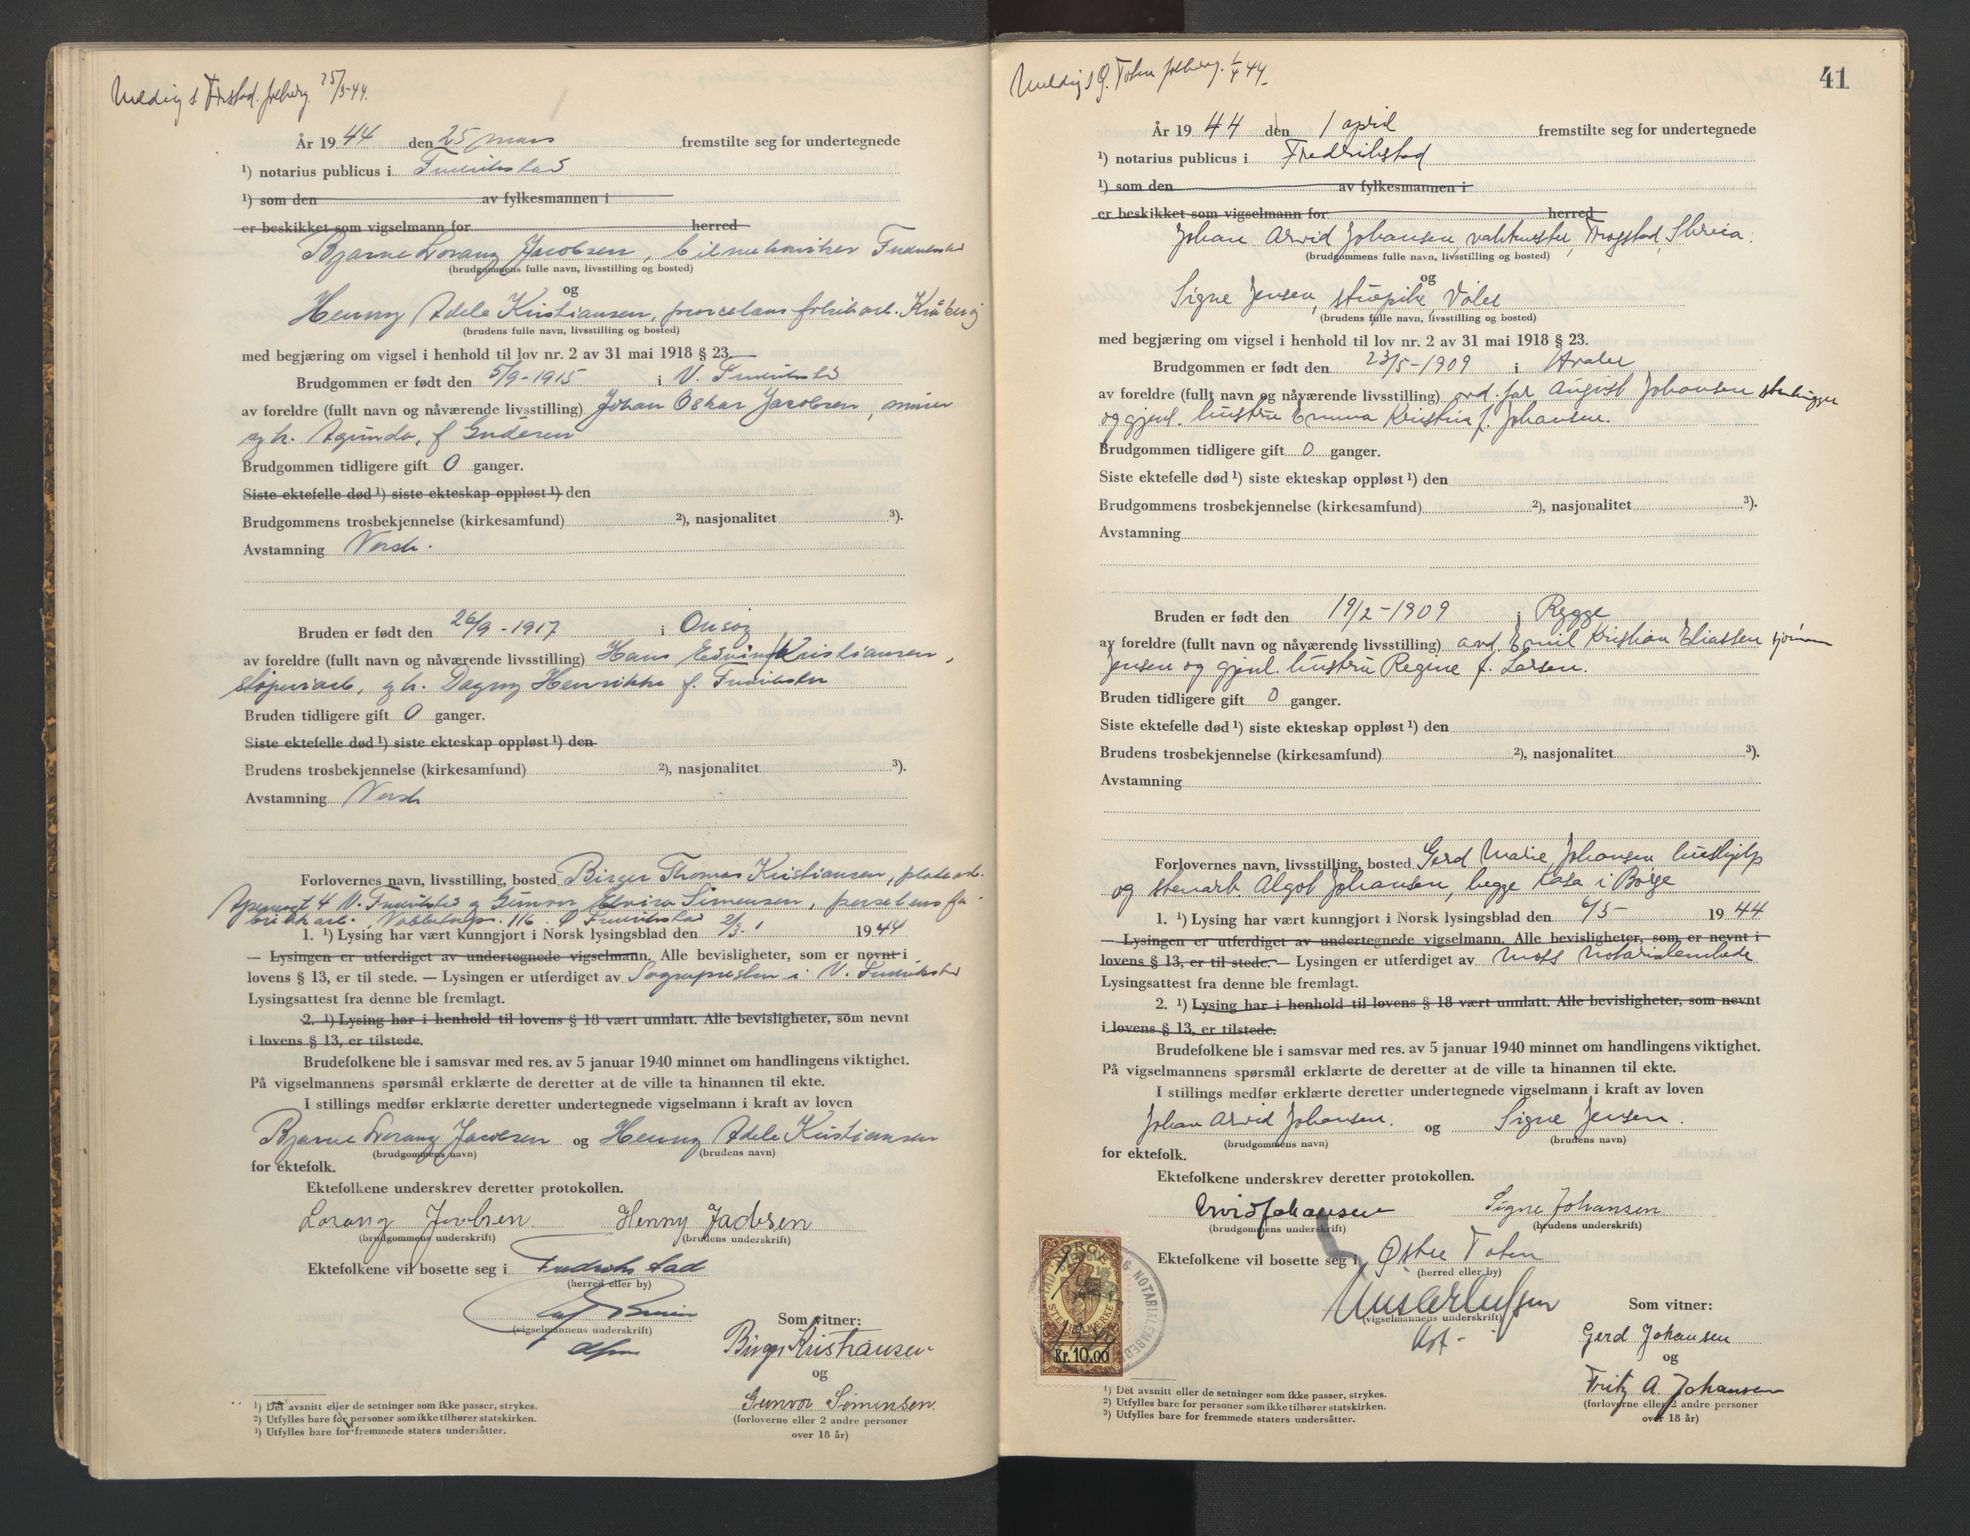 25/3-44.
År 1944 den 25 mars fremstilte seg for undertegnede
¹) notarius publicus i Fredrikstad
¹) som den av fylkesmannen i
er beskikket som vigselmann for herred
Bjarne Lorang Jacobsen, bilmekaniker Fredrikstad
(brudgommens fulle navn, livsstilling og bosted)
og
Henny Adele Kristiansen, porcelæns fabrikarb. Kråkerøy
(brudens fulle navn, livsstilling og bosted)
med begjæring om vigsel i henhold til lov nr. 2 av 31 mai 1918 § 23.
Brudgommen er født den 5/9-1915 i V. Fredrikstad
av foreldre (fullt navn og nåværende livsstilling) Johan Oskar Jacobsen, murer
og h. Agunda, f
Brudgommen tidligere gift 0 ganger.
Siste ektefelle død ¹) siste ekteskap oppløst ¹) den
Brudgommens trosbekjennelse (kirkesamfund) ²), nasjonalitet ³).
Avstamning Norsk.
Bruden er født den 26/9-1917 i Onsøy
av foreldre (fullt navn og nåværende livsstilling) Hans Edvin Kristiansen,
støperiarb, g h. Dagny Henrikke f. Fredrikster
Bruden tidligere gift 0 ganger.
Siste ektefelle død ¹) siste ekteskap oppløst ¹) den
Brudens trosbekjennelse (kirkesamfund) ²), nasjonalitet ³).
Avstamning Norsk
Forlovernes navn, livsstilling, bosted Birger Thomas Kristiansen, platearb.
4 V. Fredrikstad og Gunvor Elvira Simensen, porselens fa-
brikkarb. 116. Ø Fredrikstad
1. ¹) Lysing har vært kunngjort i Norsk lysingsblad den 2/3. 1944
— Lysingen er utferdiget av undertegnede vigselmann. Alle bevisligheter, som er nevnt i
lovens § 13, er til stede. — Lysingen er utferdiget av Sognepresten i V. Fredrikstad
Lysingsattest fra denne ble fremlagt.
2. ¹) Lysing har i henhold til lovens § 18 vært unnlatt. Alle bevisligheter, som nevnt
i lovens § 13, er tilstede.
Brudefolkene ble i samsvar med res. av 5 januar 1940 minnet om handlingens viktighet.
På vigselmannens spørsmål erklærte de deretter at de ville ta hinannen til ekte.
I stillings medfør erklærte deretter undertegnede vigselmann i kraft av loven
Bjarne Lorang Jacobsen og Henny Adele Kristiansen
(brudgommens navn) (brudens navn)
for ektefolk.
Ektefolkene underskrev deretter protokollen.
Lorang Jacobsen Henny Jacobsen
(brudgommens underskrift) (brudens underskrift)
Ektefolkene vil bosette seg i Fredrikstad
(herred eller by)
(vigselmannens underskrift)
Som vitner:
Birger Kristiansen
og
Gunvor Simensen
(forloverne eller 2 andre personer
over 18 år)
¹) Det avsnitt eller de setninger som ikke passer, strykes.
²) Utfylles bare for personer som ikke tilhører statskirken.
³) Utfylles bare for fremmede staters undersåtter.
Ø. Toten 1/4 44.
41
År 1944 den 1 april fremstilte seg for undertegnede
¹) notarius publicus i Fredrikstad
¹) som den av fylkesmannen i
er beskikket som vigselmann for herred
Johan Arvid Johansen vaktmester, Skreia.
(brudgommens fulle navn, livsstilling og bosted)
og
Signe Jensen, stuepike, Våler
(brudens fulle navn, livsstilling og bosted)
med begjæring om vigsel i henhold til lov nr. 2 av 31 mai 1918 § 23.
Brudgommen er født den 23/5-1909 i Hvaler
av foreldre (fullt navn og nåværende livsstilling) avd. far August Johansen stenhugger
og gjenl. hustru Emma Kristine f. Johansen.
Brudgommen tidligere gift 0 ganger.
Siste ektefelle død ¹) siste ekteskap oppløst ¹) den
Brudgommens trosbekjennelse (kirkesamfund) ²), nasjonalitet ³).
Avstamning
Bruden er født den 19/2-1909 i Rygge
av foreldre (fullt navn og nåværende livsstilling) avd Emil Kristian Eliassen sjømann
Jensen og gjenl. hustru Regine f. Larsen.
Bruden tidligere gift 0 ganger.
Siste ektefelle død ¹) siste ekteskap oppløst ¹) den
Brudens trosbekjennelse (kirkesamfund) ²), nasjonalitet ³).
Avstamning
Forlovernes navn, livsstilling, bosted Gerd Marie Johansen hushjelp
og stenarb. Algot Johansen, begge Kasa i Borge
1. ¹) Lysing har vært kunngjort i Norsk lysingsblad den 1944
— Lysingen er utferdiget av undertegnede vigselmann. Alle bevisligheter, som er nevnt i
lovens § 13, er til stede. — Lysingen er utferdiget av Moss Notarialembede
Lysingsattest fra denne ble fremlagt.
2. ¹) Lysing har i henhold til lovens § 18 vært unnlatt. Alle bevisligheter, som nevnt
i lovens § 13, er tilstede.
Brudefolkene ble i samsvar med res. av 5 januar 1940 minnet om handlingens viktighet.
På vigselmannens spørsmål erklærte de deretter at de ville ta hinannen til ekte.
I stillings medfør erklærte deretter undertegnede vigselmann i kraft av loven
Johan Arvid Johansen. og Signe Jensen.
(brudgommens navn) (brudens navn)
for ektefolk.
Ektefolkene underskrev deretter protokollen.
Arvid Johansen Signe Johansen
(brudgommens underskrift) (brudens underskrift)
Ektefolkene vil bosette seg i Østre Toten
(herred eller by)
(vigselmannens underskrift)
Som vitner:
Gerd Johansen
og
Fritz A. Johansen
(forloverne eller 2 andre personer
over 18 år)
NORGE
STEMPELMERKE
Kr. 10.00
NOTARIALEMBED
¹) Det avsnitt eller de setninger som ikke passer, strykes.
²) Utfylles bare for personer som ikke tilhører statskirken.
³) Utfylles bare for fremmede staters undersåtter.